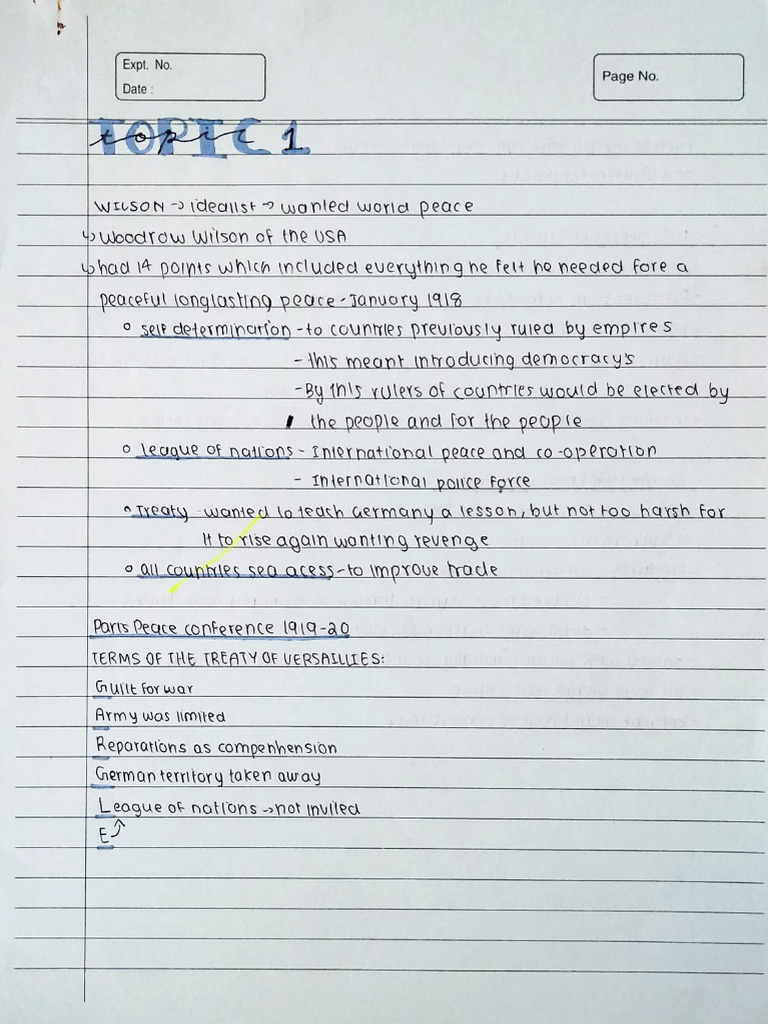 Expt. No.
Date :
Page No.
TOPIC 1
topic
WILSON → idealist → wanted world peace
↳ Woodrow Wilson of the USA
↳ had 14 points which included everything he felt he needed fore a
peaceful longlasting peace - January 1918
o self determination - to countries previously ruled by empires
- this meant introducing democracy's
- By this rulers of countries would be elected by
the people and for the people
o league of nations - International peace and co-operation
- International police force
o Treaty - wanted to teach Germany a lesson, but not too harsh for
it to rise again wanting revenge
o all countries sea acess - to improve trade
Paris Peace conference 1919-20
TERMS OF THE TREATY OF VERSAILLIES:
Guilt for war
Army was limited
Reparations as compenhension
German territory taken away
League of nations → not invited
E